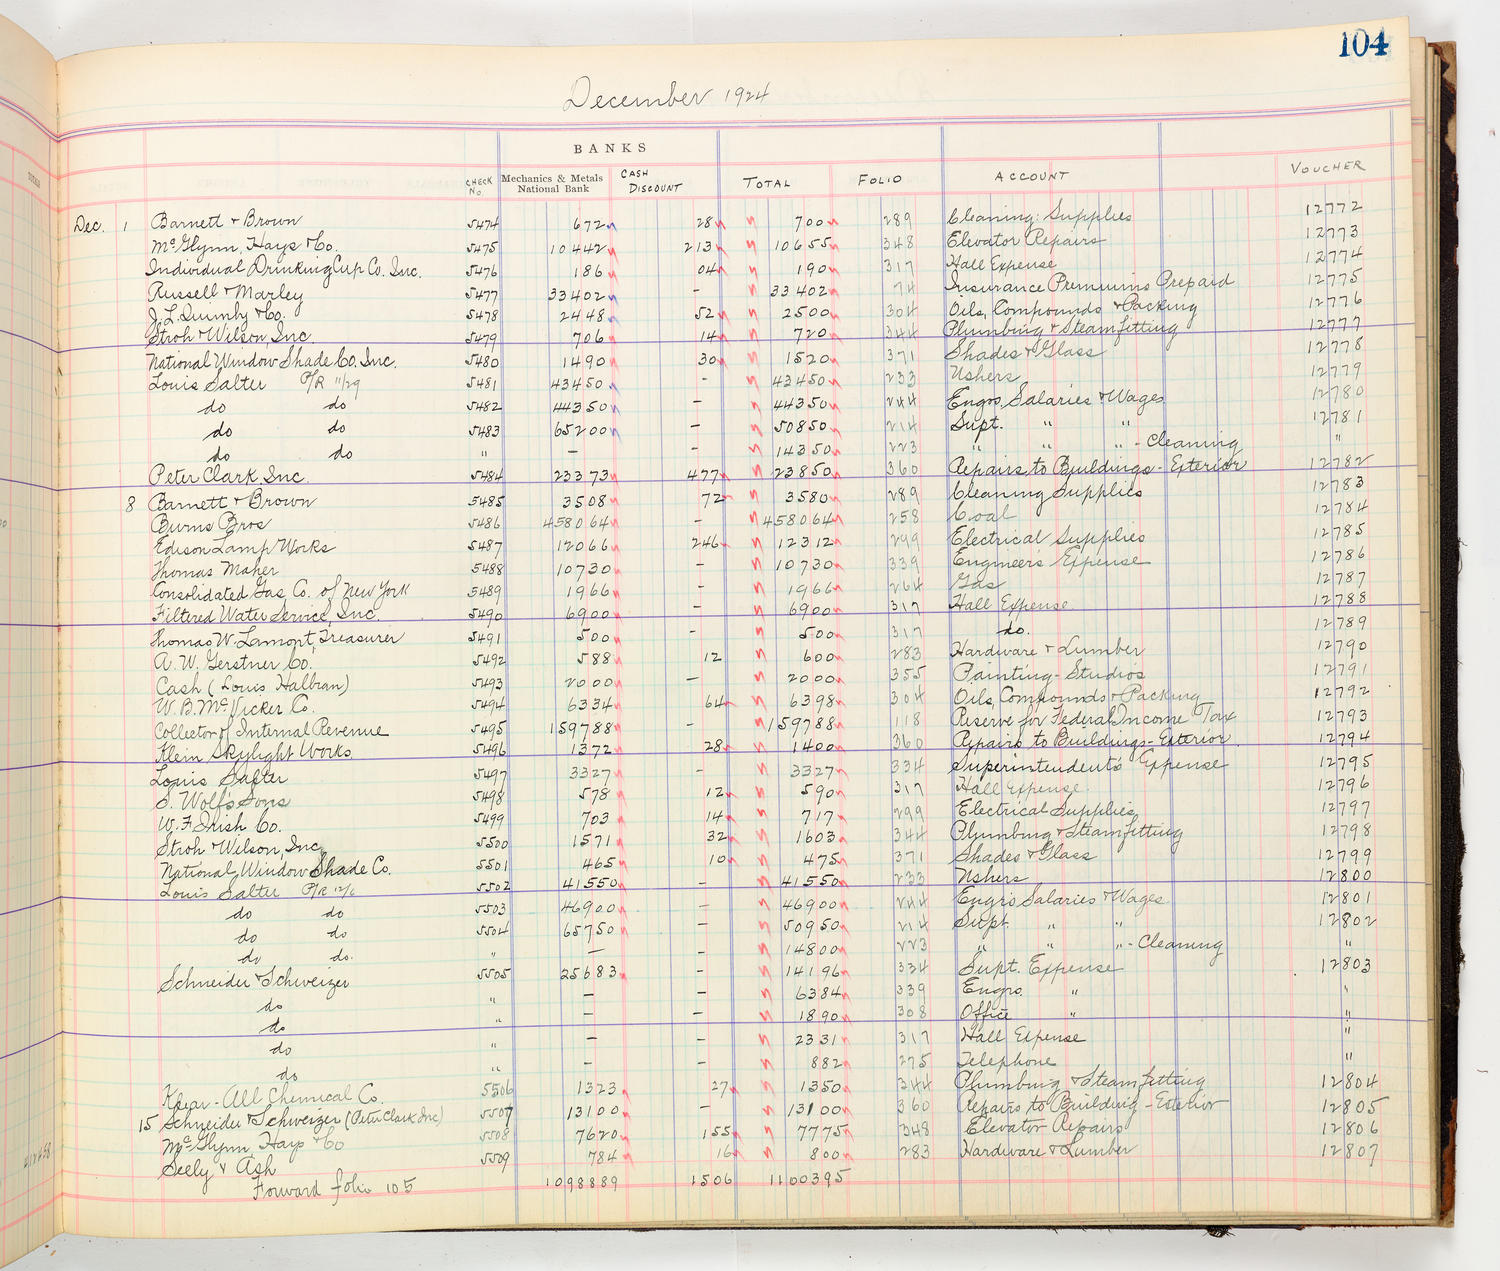 104
December 1924
BANKS
CHECK No. Mechanics & Metals National Bank CASH DISCOUNT TOTAL FOLIO ACCOUNT VOUCHER
Dec. 1 Barnett & Brown 5474 672 28 700 289 Cleaning Supplies 12772
McGlynn, Hays & Co. 5475 10442 213 10655 348 Elevator Repairs 12773
Individual Drinking Cup Co. Inc. 5476 186 04 190 317 Hall Expense 12774
Russell & Marley 5477 33402 - 33402 74 Insurance Premiums Prepaid 12775
J. L. Quimby & Co. 5478 2448 52 2500 304 Oils, Compounds & Packing 12776
Stroh & Wilson, Inc. 5479 706 14 720 344 Plumbing & Steamfitting 12777
National Window Shade Co. Inc. 5480 1490 30 1520 371 Shades & Glass 12778
Louis Salter P/R 11/29 5481 43450 - 43450 233 Ushers 12779
do do 5482 44350 - 44350 244 Engrs. Salaries & Wages 12780
do do 5483 65200 - 50850 214 Supt. " " 12781
do do " - 14350 223 " " " - Cleaning "
Peter Clark Inc. 5484 23373 477 23850 360 Repairs to Buildings - Exterior 12782
8 Barnett & Brown 5485 3508 72 3580 289 Cleaning Supplies 12783
Burns Bros 5486 458064 - 458064 258 Coal 12784
Edison Lamp Works 5487 12066 246 12312 299 Electrical Supplies 12785
Thomas Maher 5488 10730 - 10730 339 Engineer's Expense 12786
Consolidated Gas Co. of New York 5489 1966 - 1966 264 Gas 12787
Filtered Water Service, Inc. 5490 6900 - 6900 317 Hall Expense 12788
Thomas W. Lamont, Treasurer 5491 500 - 500 317 do. 12789
A. W. Gerstner Co. 5492 588 12 600 283 Hardware & Lumber 12790
Cash (Louis Halbran) 5493 2000 - 2000 355 Painting - Studios 12791
W. B. McVicker Co. 5494 6334 64 6398 304 Oils, Compounds & Packing 12792
Collector of Internal Revenue 5495 159788 - 159788 118 Reserve for Federal Income Tax 12793
Klein Skylight Works. 5496 1372 28 1400 360 Repairs to Buildings - Exterior. 12794
Louis Salter 5497 3327 - 3327 334 Superintendent's Expense 12795
S. Wolf's Sons 5498 578 12 590 317 Hall Expense 12796
W. F. Irish Co. 5499 703 14 717 299 Electrical Supplies 12797
Stroh & Wilson, Inc. 5500 1571 32 1603 344 Plumbing & Steamfitting 12798
National Window Shade Co. 5501 465 10 475 371 Shades & Glass 12799
Louis Salter P/R 12/6 5502 41550 - 41550 233 Ushers 12800
do do 5503 46900 - 46900 244 Engrs Salaries & Wages 12801
do do 5504 65750 - 50950 214 Supt. " " 12802
do do. " - 14800 223 " " " - Cleaning "
Schneider & Schweizer 5505 25683 - 14196 334 Supt. Expense 12803
do " - - 6384 339 Engrs. " "
do " - - 1890 308 Office " "
do " - - 2331 317 Hall Expense "
do " - - 882 275 Telephone "
Klear-All Chemical Co. 5506 1323 27 1350 344 Plumbing & Steamfitting 12804
15 Schneider & Schweizer (Peter Clark Inc) 5507 13100 - 13100 360 Repairs to Building - Exterior 12805
McGlynn, Hays & Co 5508 7620 155 7775 348 Elevator Repairs 12806
Seely & Ash 5509 784 16 800 283 Hardware & Lumber 12807
Forward folio 105 1098889 1506 1100395